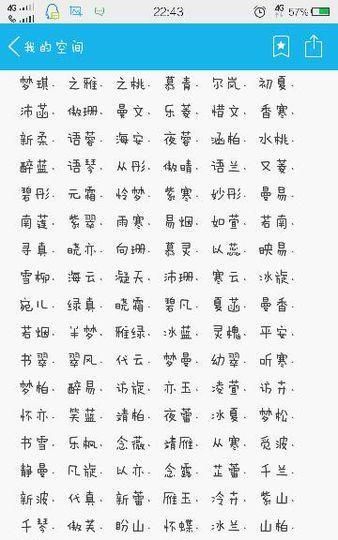 4G 22:43 4G 57%
我的空间
梦琪. 之雅. 之桃. 慕青. 尔岚. 初夏.
沛菡. 傲珊. 曼文. 乐菱. 惜文. 香寒.
新柔. 语蓉. 海安. 夜蓉. 涵柏. 水桃.
醉蓝. 语琴. 从彤. 傲晴. 语兰. 又菱.
碧彤. 元霜. 怜梦. 紫寒. 妙彤. 曼易.
南莲. 紫翠. 雨寒. 易烟. 如萱. 若南.
寻真. 晓亦. 向珊. 慕灵. 以蕊. 映易.
雪柳. 海云. 凝天. 沛珊. 寒云. 冰旋.
宛儿. 绿真. 晓霜. 碧凡. 夏菡. 曼香.
若烟. 半梦. 雅绿. 冰蓝. 灵槐. 平安.
书翠. 翠风. 代云. 梦曼. 幼翠. 听寒.
梦柏. 醉易. 访旋. 亦玉. 凌萱. 访卉.
怀亦. 笑蓝. 靖柏. 夜蕾. 冰夏. 梦松.
书雪. 乐枫. 念薇. 靖雁. 从寒. 觅波.
静曼. 凡旋. 以亦. 念露. 芷蕾. 千兰.
新波. 代真. 新蕾. 雁玉. 冷卉. 紫山.
千琴. 傲芙. 盼山. 怀蝶. 冰兰. 山柏.